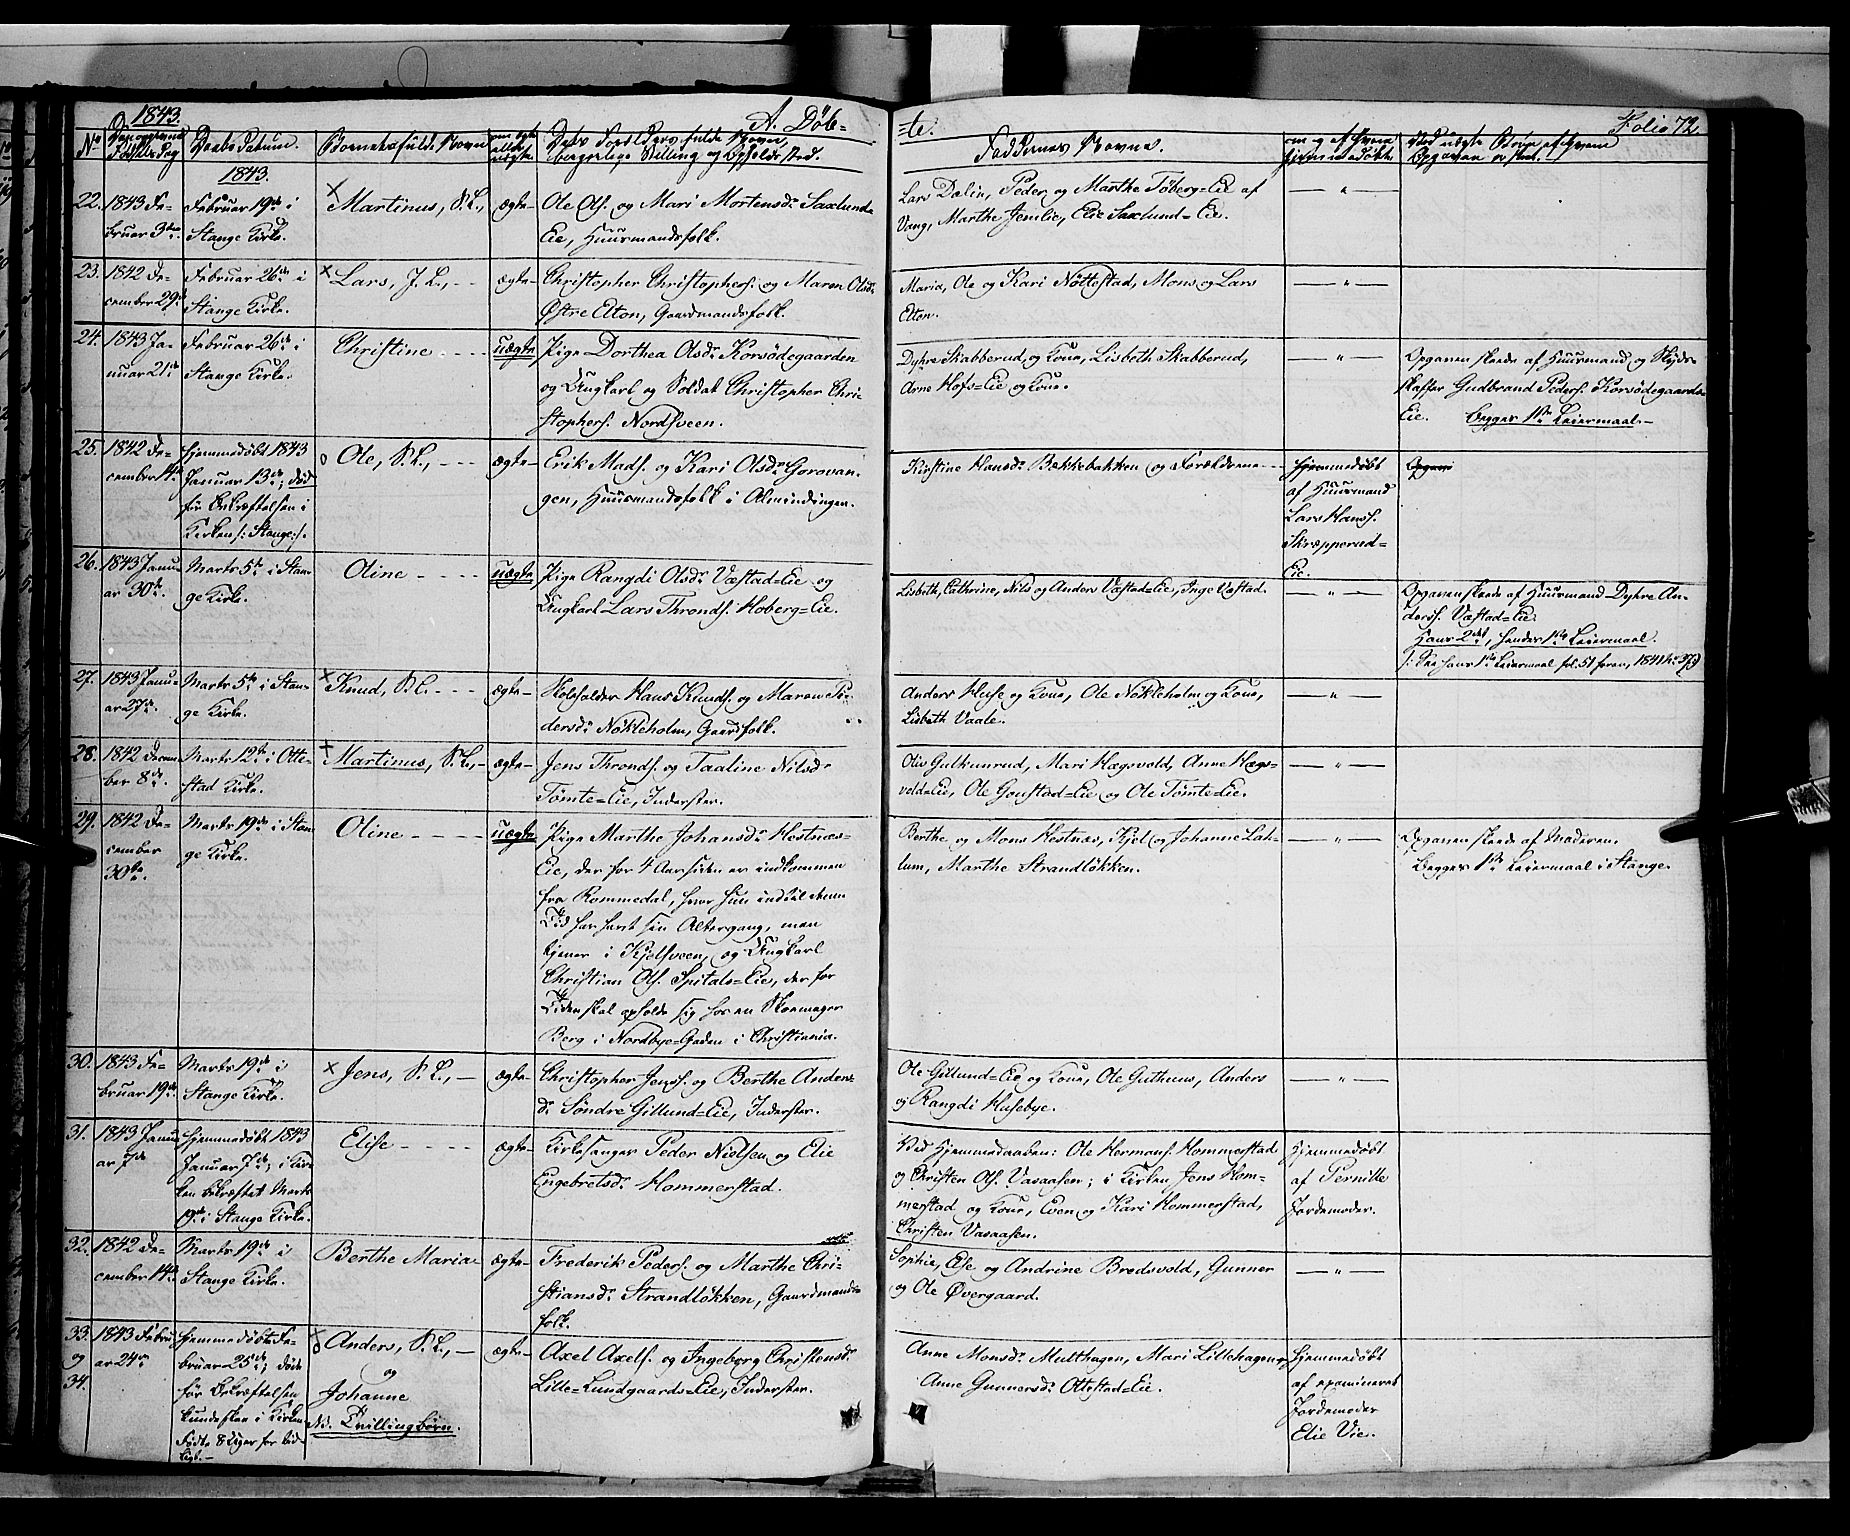 1843.
A. Døb=
=te.
Folio 72
No
Daabs Datum.
Barnets fulde Navn
Deres Forældres fulde Navne
borgerlige Stilling og Opholdssted.
Faddernes Navne.
1843.
22.
1843 Fe-
bruar 3die.
Februar 19de i
Stange Kirke.
Martinus, S. L.,
ægte-
Ole Ols. og Mari Mortensdr Saxlunds
Eie, Huusmandsfolk.
Lars Dælin, Peder og Marthe Töberg=Eie af
Vang, Marthe Jemlie, Elie Saxlund=Eie.
23.
1842 De-
cember 29de
Februar 26de i
Stange Kirke.
Lars, J. L.,
ægte-
Christopher Christophers. og Maren Olsdr
Østre Elton, Gaardmandsfolk.
Maria, Ole og Kari Nöttestad, Mons og Lars
Elton.
24.
1843 Ja-
nuar 21de
Februar 26de i
Stange Kirke.
Christine
uægte
Pige Dorthea Olsdr Korsödegaarden
og Ungkarl og Soldat Christopher Chri-
stophers. Nordsveen.
Dyhre Skabberud, og Kone, Lisbeth Skabberud,
Arne Hofs=Eie og Kone.
Opgaven skeede af Huusmand og Skyds-
skaffer Gudbrand Peders. Korsödegaards=
Eie. Begges 1ste Leiermaal.-
25.
1842 De-
cember 14de
Hjemmedøbt 1843
Januar 13de; död
för Bekræftelsen i
Kirken /: Stange:/.
Ole, S. L.,
ægte-
Erik Mads. og Kari Olsdr Gorovan-
gen, Huusmandsfolk i Almindingen.
Kirstine Hansdr Bakkebakken og Forældrene
Hjemmedöbt
af Huusmand
Lars Hans.
Skræpperud=
Eie.
26.
1843 Janu-
ar 30te.
Marts 5te i Stan-
ge Kirke.
Oline
uægte
Pige Rangdi Olsdr Væstad=Eie og
Ungkarl Lars Thronds. Hoberg=Eie.
Lisbeth, Cathrine, Nils og Anders Væstad=Eie, Inge Væstad.
Opgaven skeede af Huusmand Dyhre An-
ders. Væstad=Eie.
Hans 2det, hendes 1ste Leiermaal.
/: See hans 1ste Leiermaal fol. 51 foran, 1841
27.
1843 Janu-
ar 27de.
Marts 5te i Stan-
ge Kirke.
Knud, S. L.
ægte-
Skoleholder Hans Knuds. og Maren Pe-
dersdr Nökleholm, Gaardfolk.
Anders Huse og Kone, Ole Nökleholm og Kone,
Lisbeth Vaale.
28.
1842 Decem-
ber 8de.
Marts 12te i Otte-
stad Kirke.
Martinus, S. L.,
ægte-
Jens Thronds. og Taaline Nilsdr
Tömte=Eie, Inderster.
Olis Gulkunrud, Mari Hægsvold, Anne Hægs-
vold=Eie, Ole Gonstad=Eie og Ole Tömte=Eie.
29.
1842 De-
cember
30te.
Marts 19de i Stan-
ge Kirke.
Oline
uægte
Pige Marthe Johansdr Hestnæs=
Eie, der for 4 Aar siden er indkommen
fra Rommedal, hvor hun indtil denne
Tid har havt sin Altergang, men
tjener i Kjelsveen, og Ungkarl
Christian Ols. Spitals=Eie, der for
Tiden skal opholde sig hos en Skomager
Berg i Nordbye=Gaden i Christiania.
Berthe og Mons Hestnæs, Kjel og Johanne Lah-
lum, Marthe Strandlökken.
Opgaven skeede af Moderen.
Begges 1ste Leiermaal i Stange.
30.
1843 Fe-
bruar 19de
Marts 19de i
Stange Kirke.
Jens, S. L.,
ægte-
Christopher Jenss. og Berthe Anders=
dr Söndre Gillund=Eie, Inderster.
Ole Gillund=Eie og Kone, Ole Guthuus, Anders
og Rangdi Husebye.
31.
1843 Janu-
ar 7de
Hjemmedöbt 1843
Januar 7de; i Kir-
ken bekræftet Marts
19de i Stange Kirke.
Elise
ægte-
Kirkesanger Peder Nielsen og Elie
Engebretsdr Hommerstad.
Ved Hjemmedaaben: Ole Hermans. Hommerstad
og Christen Ols. Vasaasen; i Kirken Jens Hom-
merstad og Kone, Even og Kari Hommerstad,
Christen Vasaasen.
Hjemmedöbt
af Pernille
Jordemoder.
32.
1842 De-
cember 14de
Marts 19de i
Stange Kirke.
Berthe Maria
ægte-
Frederik Peders. og Marthe Chri-
stiansdr Strandlökken, Gaardmands-
folk.
Sophie, Else og Andrine Bredsvold, Gunner
og Ole Övergaard.
33.
og
34.
1843 Febru-
ar 24de
Hjemmedöbt Fe-
bruar 25de; döde
för Bekræftelsen
kunde skee i Kirken.
Födte 8 Uger for tid-
ligt.-
Anders, S. L.,
og
Johanne
NB. Tvillingbörn.
ægte-
Axel Axels. og Ingeborg Christensdr
Lille=Lundgaards=Eie, Inderster.
Anne Monsdr Multhagen, Mari Lillehagen,
Anne Gunnersdr Ottestad=Eie.
Hjemmedöbt
af examineret
Jordemoder
Elie Vie.